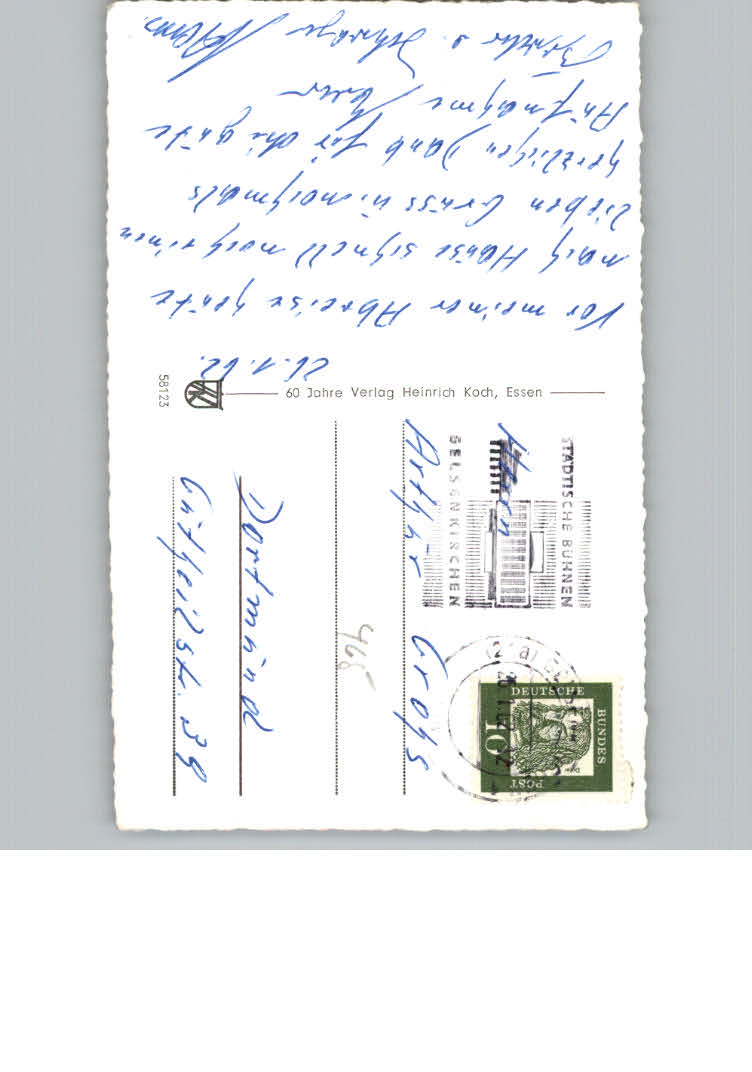 26.1.62.
Vor meiner Abreise heute
nach Hause schnell noch einen
lieben Gruss u. nochmals
herzlichen Dank für die gute
Aufnahme
Bruder u. Schwager
60 Jahre Verlag Heinrich Koch, Essen
58123
STÄDTISCHE BÜHNEN
GELSENKIRCHEN
(21a)
DEUTSCHE
BUNDES
POST
10
Dürer
Herrn
Arthur Grohs
468
Dortmund
Gutheilstr. 39